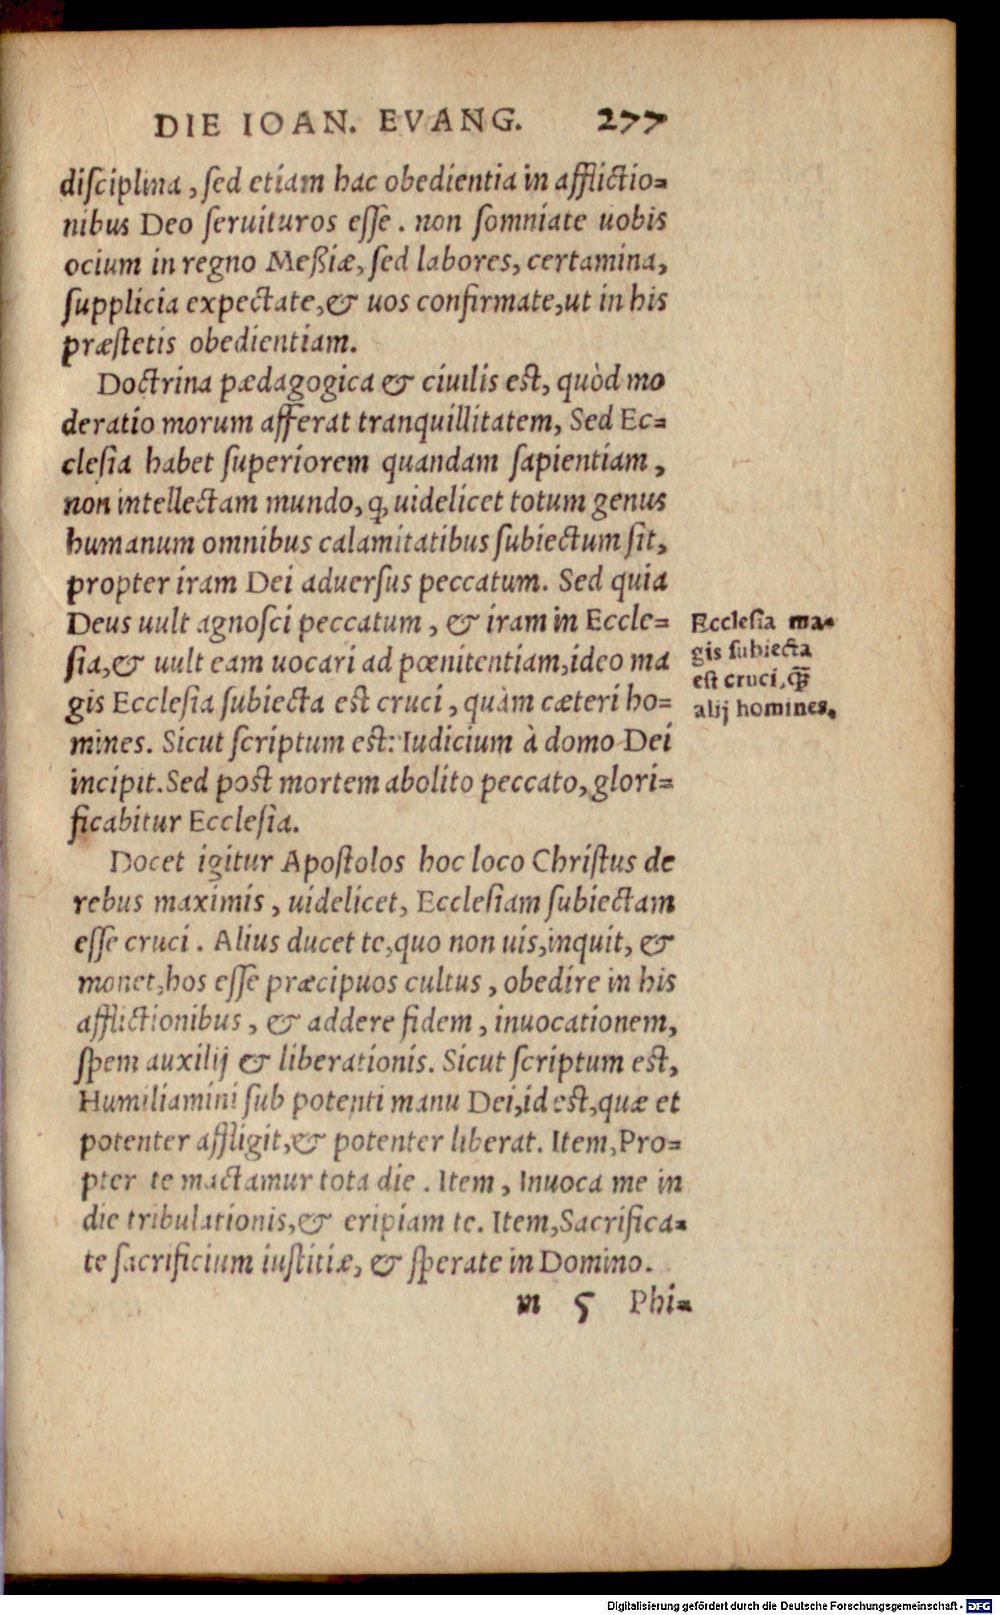 DIE IOAN. EVANG. 277
disciplina, sed etiam hac obedientia in afflictio=
nibus Deo seruituros esse. non somniate uobis
ocium in regno Meßiæ, sed labores, certamina,
supplicia expectate, & uos confirmate, ut in his
præstetis obedientiam.
Doctrina pædagogica & ciuilis est, quòd mo
deratio morum afferat tranquillitatem, Sed Ec=
clesia habet superiorem quandam sapientiam,
non intellectam mundo, ꝙ uidelicet totum genus
humanum omnibus calamitatibus subiectum sit,
propter iram Dei aduersus peccatum. Sed quia
Deus uult agnosci peccatum, & iram in Eccle=
sia, & uult eam uocari ad pœnitentiam, ideo ma
gis Ecclesia subiecta est cruci, quàm cæteri ho=
mines. Sicut scriptum est: Iudicium à domo Dei
incipit. Sed post mortem abolito peccato, glori=
ficabitur Ecclesia.
Ecclesia ma=
gis subiecta
est cruci, ꝙ̃
alij homines.
Docet igitur Apostolos hoc loco Christus de
rebus maximis, uidelicet, Ecclesiam subiectam
esse cruci. Alius ducet te, quo non uis, inquit, &
monet, hos esse præcipuos cultus, obedire in his
afflictionibus, & addere fidem, inuocationem,
spem auxilij & liberationis. Sicut scriptum est,
Humiliamini sub potenti manu Dei, id est, quæ et
potenter affligit, & potenter liberat. Item, Pro=
pter te mactamur tota die. Item, Inuoca me in
die tribulationis, & eripiam te. Item, Sacrifica=
te sacrificium iustitiæ, & sperate in Domino.
m 5 Phi=
Digitalisierung gefördert durch die Deutsche Forschungsgemeinschaft - DFG